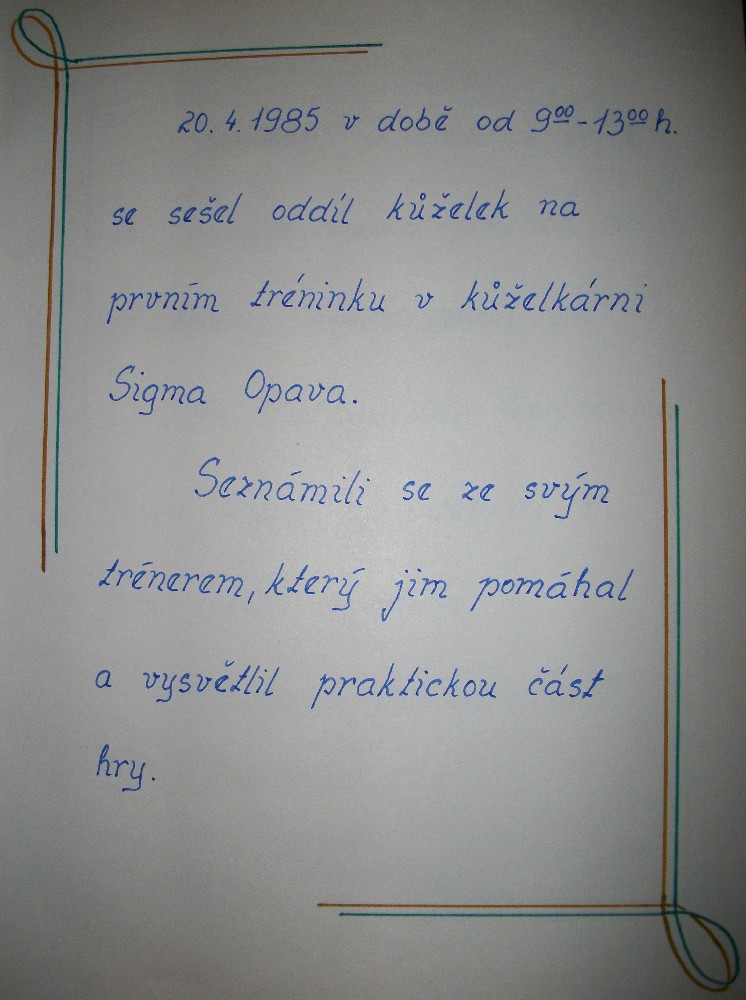 20. 4. 1985 v době od 9⁰⁰-13⁰⁰ h.
se sešel oddíl kůželek na
prvním tréninku v kůželkárni
Sigma Opava.
Seznámili se ze svým
trénerem, který jim pomáhal
a vysvětlil praktickou část
hry.